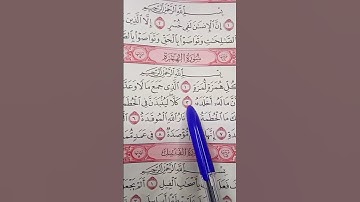 بِسْمِ اللَّهِ الرَّحْمَٰنِ الرَّحِيمِ
إِنَّ الْإِنسَانَ لَفِي خُسْرٍ ٢ إِلَّا الَّذِينَ
الصَّالِحَاتِ وَتَوَاصَوْا بِالْحَقِّ وَتَوَاصَوْا بِالصَّ
سُورَةُ الْهُمَزَةِ
بِسْمِ اللَّهِ الرَّحْمَٰنِ الرَّحِيمِ
كُلِّ هُمَزَةٍ لُّمَزَةٍ ١ الَّذِي جَمَعَ مَالًا وَعَدَّ
نَّ مَالَهُ أَخْلَدَهُ ٣ كَلَّا لَيُنبَذَنَّ فِي الْحُطَ
مَا الْحُطَمَةُ نَارُ اللَّهِ الْمُوقَدَةُ ٦
إِنَّهَا مُّؤْصَدَةٌ ٨ فِي عَمَدٍ
سُورَةُ الْفِيلِ
بِسْمِ اللَّهِ الرَّحْمَٰنِ الرَّحِيمِ
فَعَلَ بِأَصْحَابِ الْفِيلِ ١ أَلَمْ يَجْعَلْ